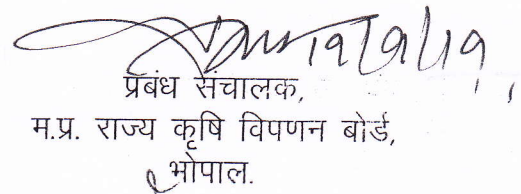 प्रबंध संचालक,
म.प्र. राज्य कृषि विपणन बोर्ड,
भोपाल.